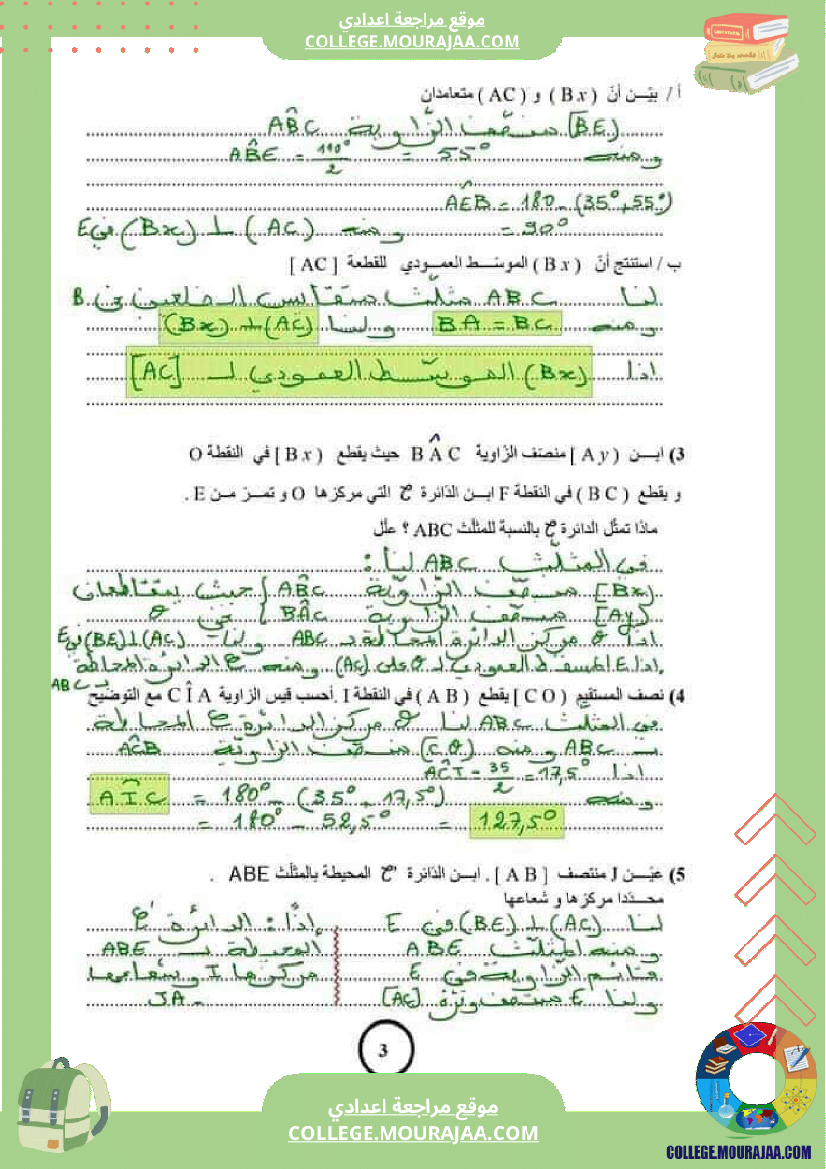 موقع مراجعة اعدادي
COLLEGE.MOURAJAA.COM
أ / بيّـــن أنّ ( Bx ) و ( AC ) متعامدان
[BE) منصّف الزّاوية ABC
ومنه ABE = 110°/2 = 55°
AEB = 180 - (35° + 55°)
= 90° ومنه (AC) ⊥ (Bx) في E
ب / استنتج أنّ ( Bx ) الموسّـــط العمـــودي للقطعة [ AC ]
لنا ABC مثلّث متقايس الضلعين في B.
ومنه BA = BC ولنا (AC) ⊥ (Bx)
اذا (Bx) الموسّط العمودي لـ [AC]
3) ابـــن [ Ay ) منصّف الزّاوية BAC حيث يقطع [ Bx ) في النقطة O
و يقطع ( BC ) في النقطة F ابـــن الدّائرة C التي مركزها O و تمـــرّ مـــن E .
ماذا تمثّل الدائرة C بالنسبة للمثلّث ABC ؟ علّل
في المثلّث ABC لنا :
[Bx) منصّف الزّاوية ABC } حيث يتقاطعان
[Ay) منصّف الزاوية BAC } في O
اذا O مركز الدائرة المحاطة بـ ABC ولنا (AC)⊥(BE) في E
اذا E المسقط العمودي لـ O على (AC) ومنه C الدائرة المحاطة
بـ ABC
4) نصف المستقيم [ CO ) يقطع ( AB ) في النقطة I .أحسب قيس الزاوية CIA مع التوضيح
في المثلّث ABC لنا O مركز الدائرة C المحاطة
بـ ABC ومنه [CO) منصّف الزاوية ACB
اذا ACI = 35/2 = 17,5°
ومنه AIC = 180° - (35° + 17,5°)
= 180° - 52,5° = 127,5°
5) عيّـــن J منتصف [ AB ] . ابـــن الدّائرة C' المحيطة بالمثلّث ABE .
محـــدّدا مركزها و شعاعها
لنا (AC) ⊥ (BE) في E
ومنه المثلّث ABE
قائم الزاوية في E
ولنا E منتصف وتره [AC]
إذًا : الدائرة C'
المحيطة بـ ABE
مركزها I وشعاعها
JA
3
موقع مراجعة اعدادي
COLLEGE.MOURAJAA.COM
COLLEGE.MOURAJAA.COM